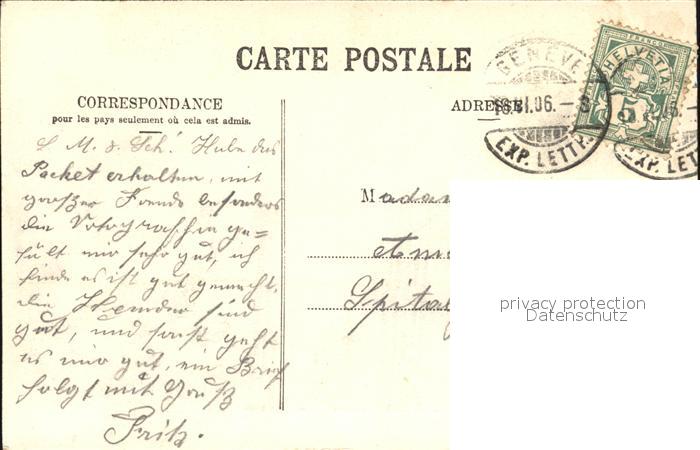 CARTE POSTALE
CORRESPONDANCE
pour les pays seulement où cela est admis.
ADRESSE
GENÈVE
16.VI.06.-8
EXP. LETTR.
FRANCO
HELVETIA
5
EXP. LET
L. M. & Sch! Habe das
Packet erhalten, mit
großer Freude besonders
die Votographie ge=
fällt mir sehr gut, ich
finde es ist gut gemacht,
die Hemder sind
gut, und sonst geht
es mir gut, ein Brief
folgt mit Gruß
Fritz.
Madam
Spital
privacy protection
Datenschutz